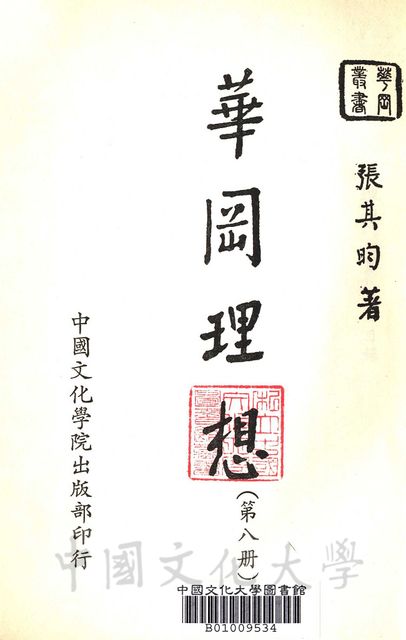 華岡
叢書
張其昀著
華岡理想
(第八册)
中國文化學院出版部印行
中國文化大學
中國文化大學圖書館
B01009534